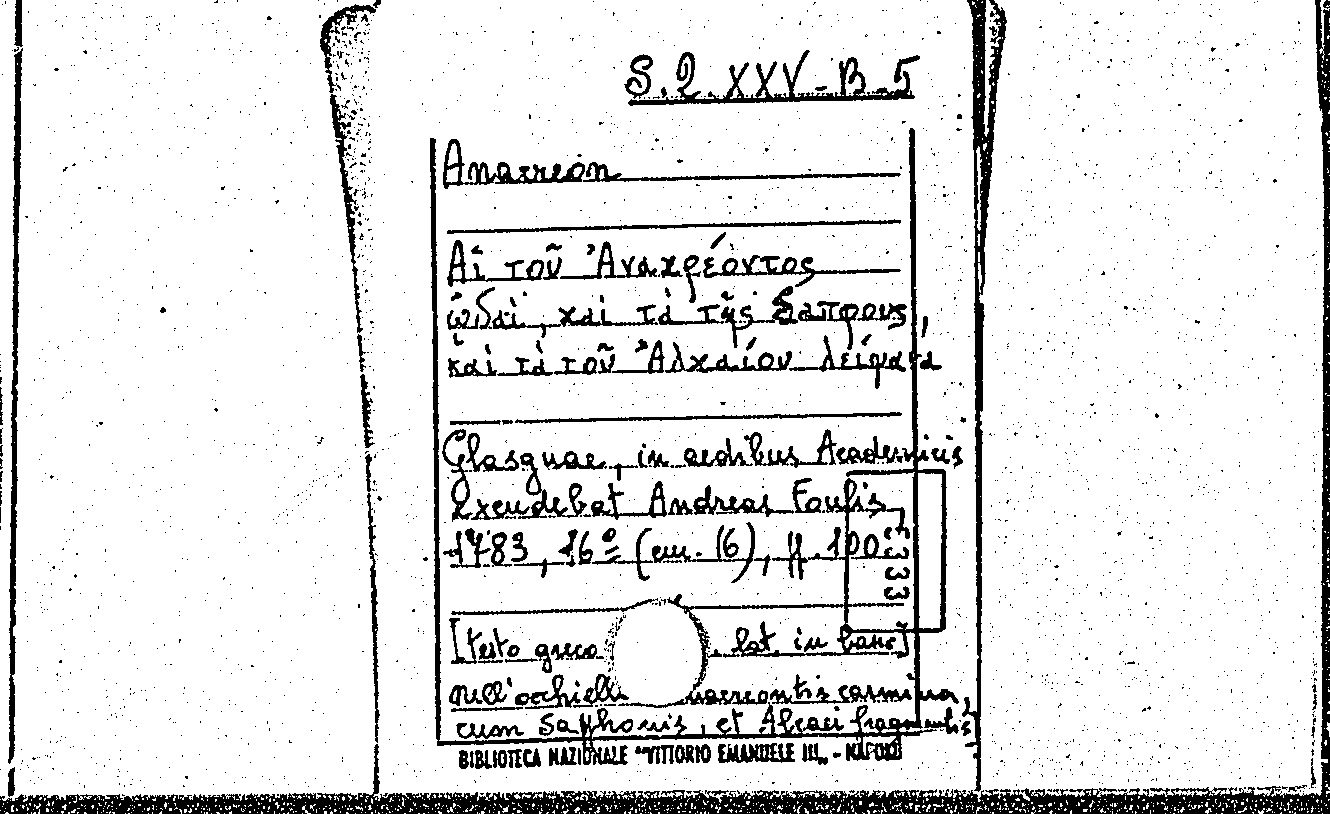 S.Q.XXV-B-5
Anacreon
Αἱ τοῦ Ἀνακρέοντος
ᾠδαὶ, καὶ τὰ τῆς Σαπφους,
καὶ τὰ τοῦ Ἀλκαίου λείψανα
Glasguae, in aedibus Academicis
Excudebat Andreas Foulis,
1783, 16º (cm. 16), pp. 100
5333
[testo greco . lat. in
nell'occhiello nacreontis carmina,
cum Sapphonis, et Alcaei fragmentis
BIBLIOTECA NAZIONALE "VITTORIO EMANUELE III„ - NAPOLI